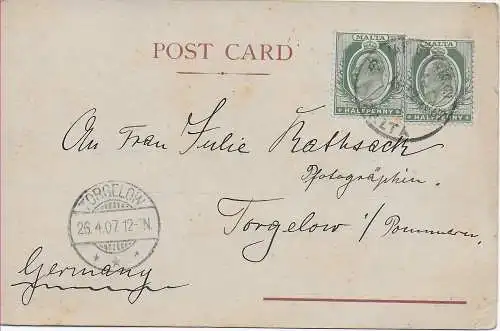 POST CARD
MALTA MALTA
HALFPENNY HALFPENNY
MALTA
An Frau Julie Rathsack
Photographin.
TORGELOW
26.4.07.12-1N.
Torgelow i/Pommern.
Germany